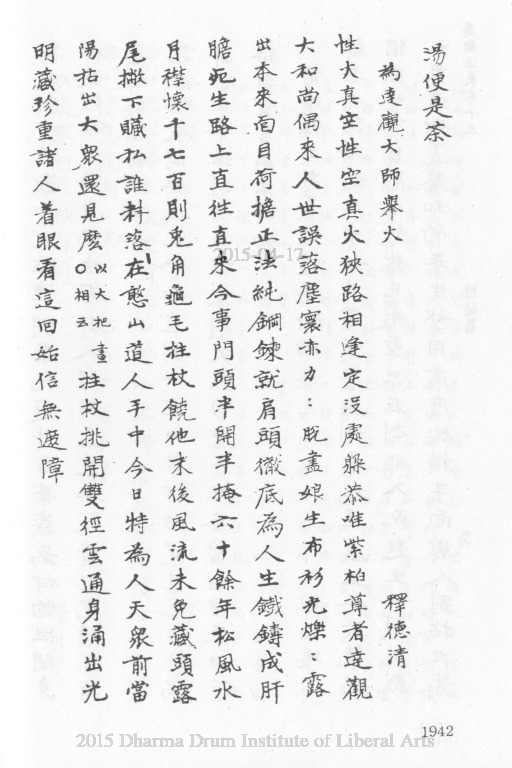 湯便是茶
為達觀大師舉火
釋德清
性火真空性空真火狹路相逢定沒處躲恭唯紫柏尊者達觀
大和尚偶來人世誤落塵寰赤力〻脫盡娘生布衫光爍〻露
出本來面目荷擔正法純鋼鍊就肩頭徹底為人生鐵鑄成肝
膽死生路上直往直來今事門頭半開半掩六十餘年松風水
月襟懷千七百則兔角龜毛拄杖饒他末後風流未免藏頭露
尾撇下贓私誰料落在憨山道人手中今日特為人天眾前當
陽拈出大眾還見麼○以火把畫相云拄杖挑開雙徑雲通身涌出光
明藏珍重諸人着眼看這回始信無遮障
2015-04-17
1942
2015 Dharma Drum Institute of Liberal Arts